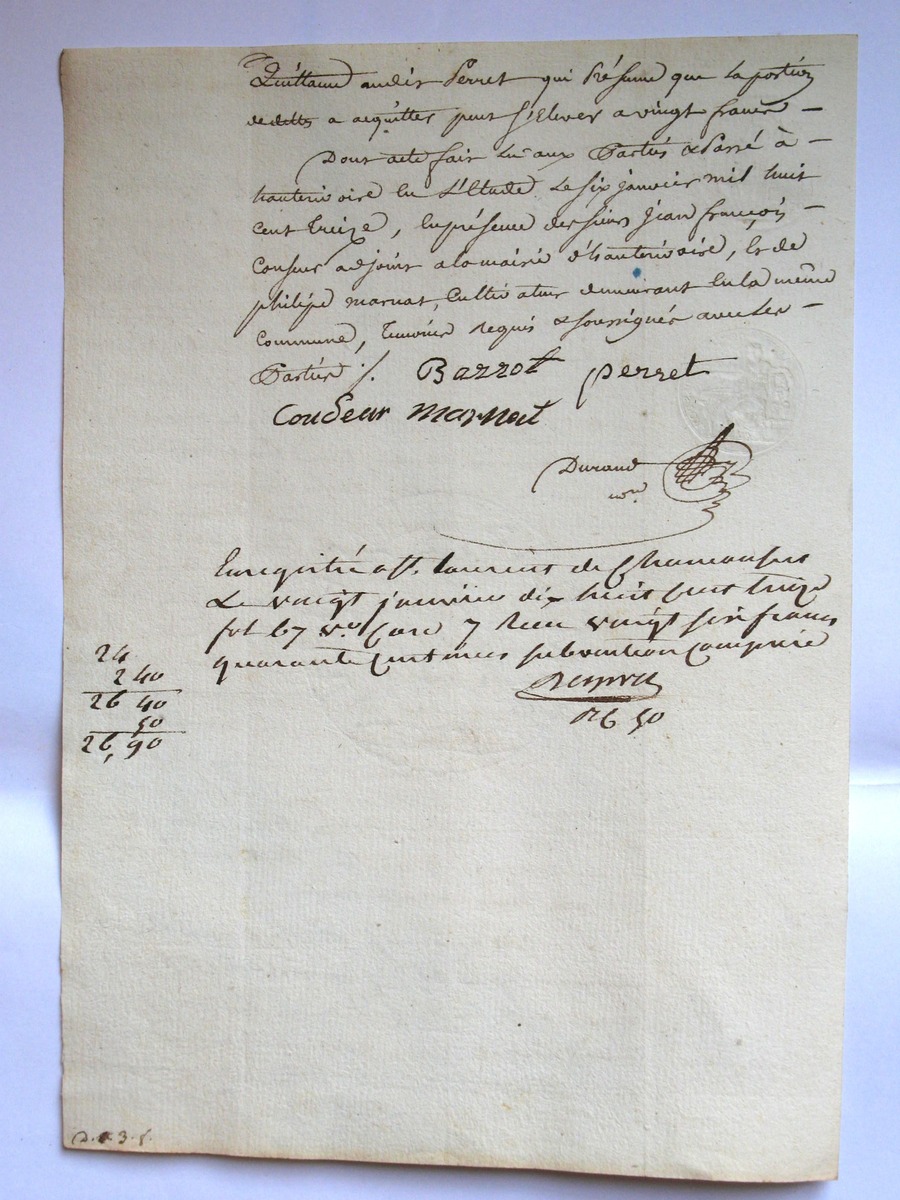 Guillaume andré Perret qui Présume que la portion
de dettes a acquitter peut s'Elever a vingt francs —
Dont acte fait Lu aux Parties & Passé à —
hauterivoire En L'Etude Le six janvier mil huit
cent treize, En présence des sieurs jean françois —
Couseur adjoint a la mairie d'hauterivoire, & de
philipe marnat, Cultivateur demeurant en la même
commune, Temoins requis & soussignés avec Les —
Parties /. Bazzot perret
Coudeur Marnat
Durand
nre
Enregistré a St. Laurent de Chamousset
Le vingt janvier dix huit cent treize
fol 67 vo. Case 7 Recu vingt six francs
quarante Centimes subvention comprise
26 50
24
2 40
26 40
50
26, 90
D. & 3. f.